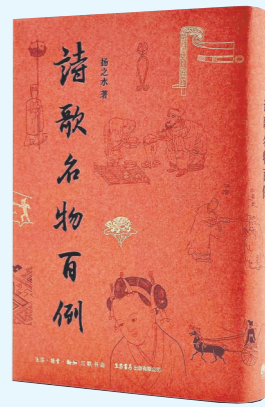 詩歌名物百例
扬之水 著
生活·讀書·新知 三联书店 生活書店出版有限公司